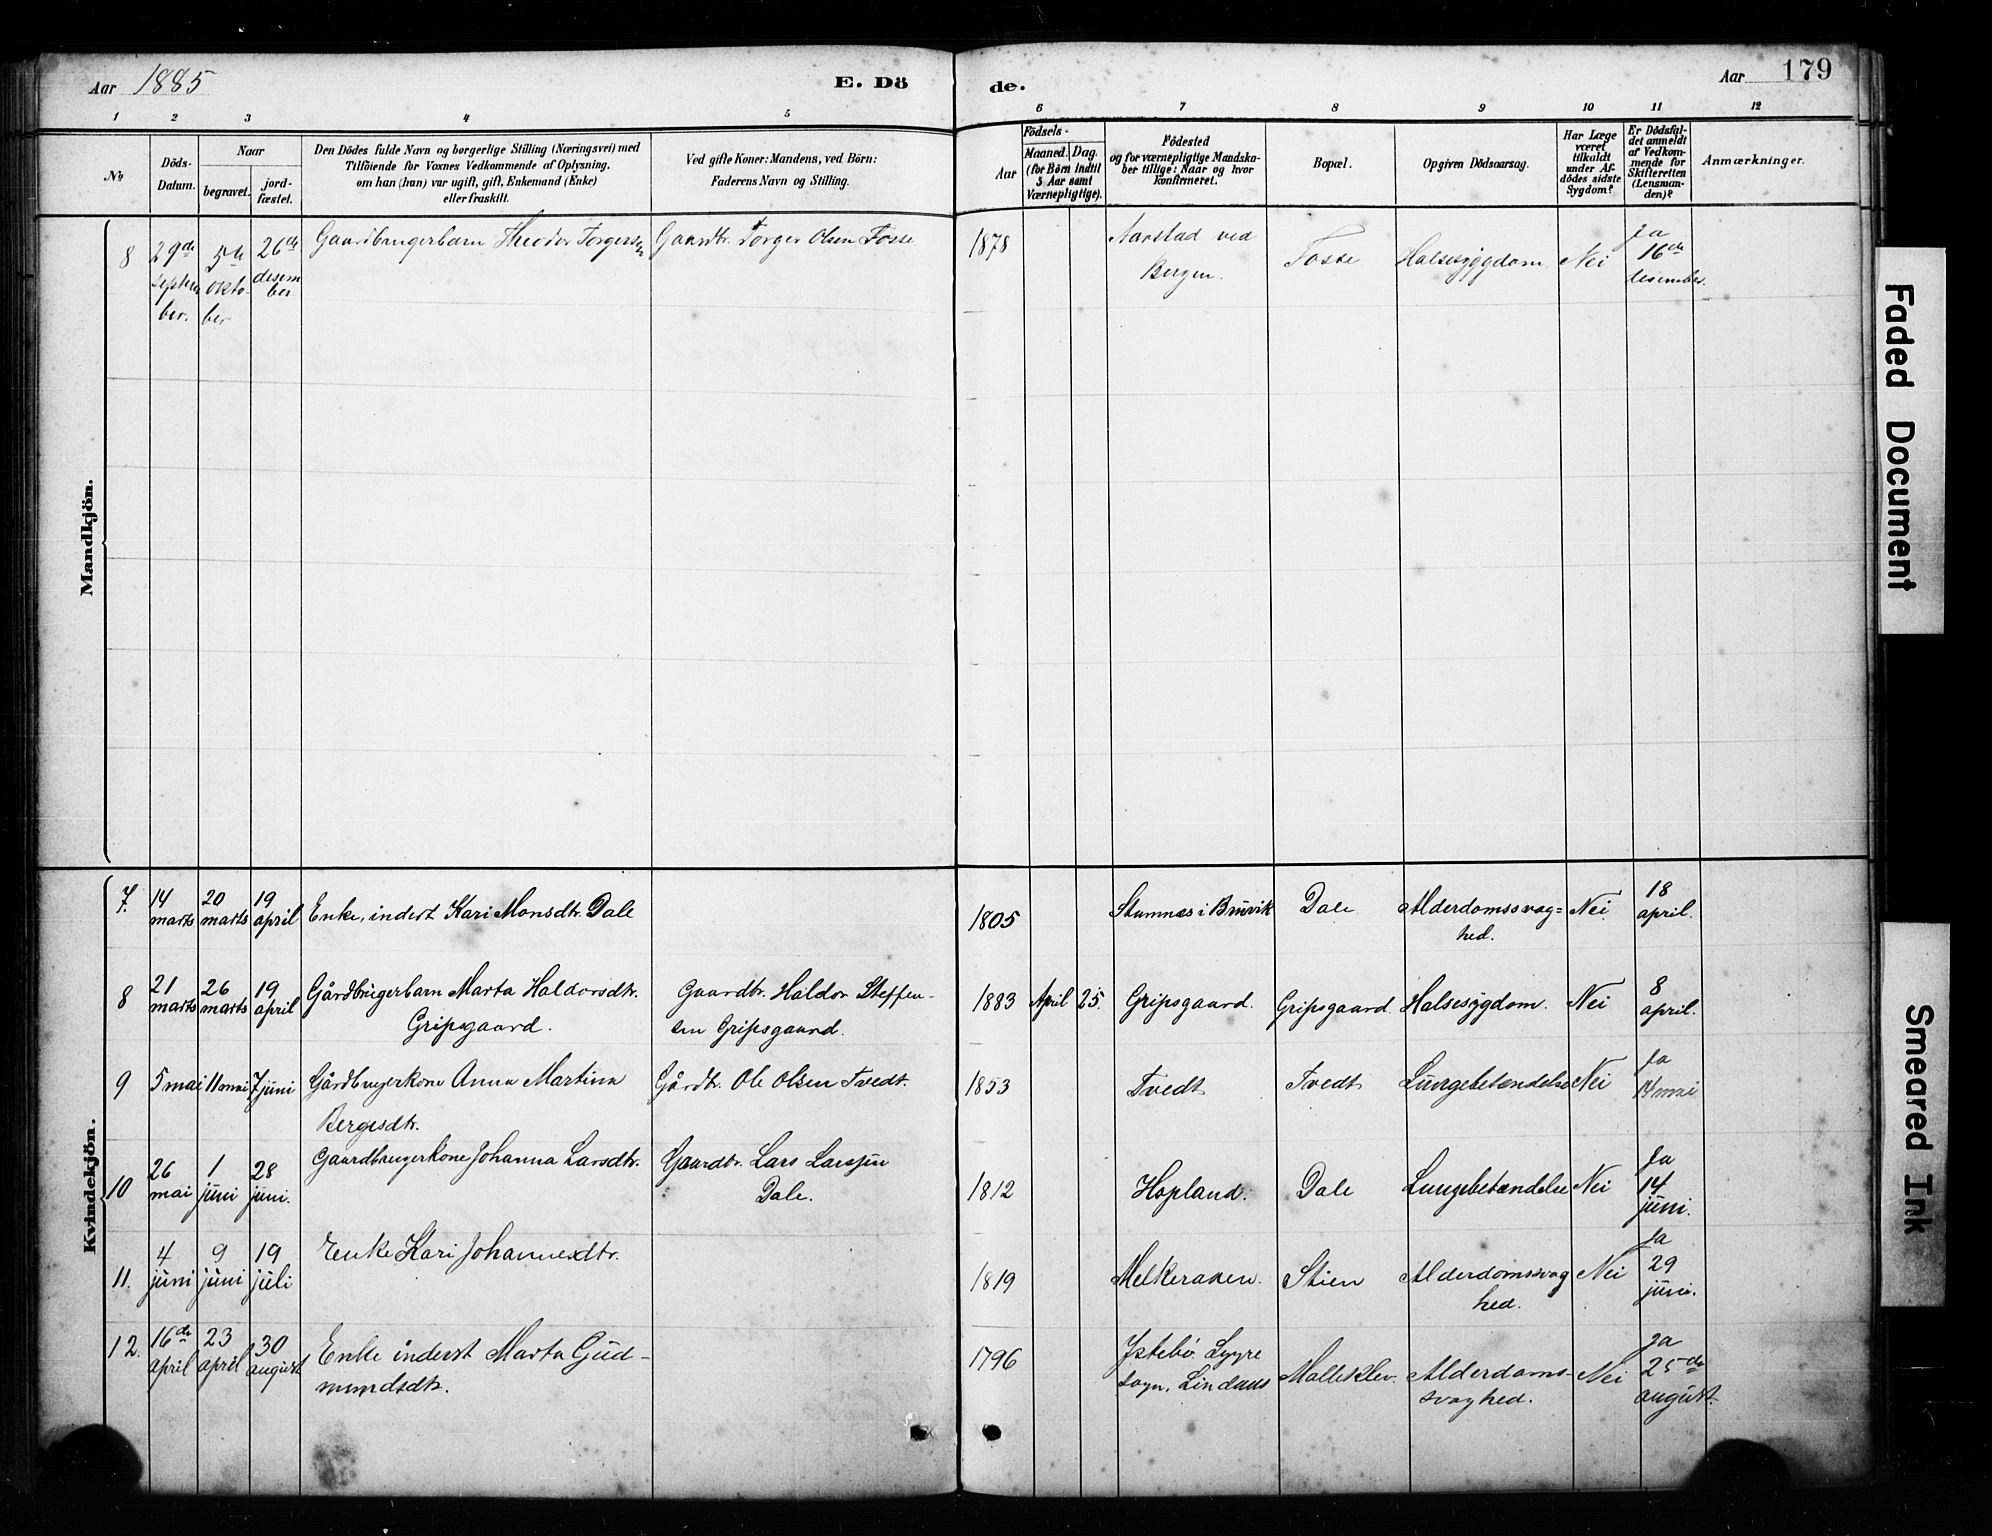 Aar 1885
E. Dö
de.
Aar
179
1 2 3 4 5 6 7 8 9 10 11 12
No
Döds-
Datum.
Naar
begravet.
jord-
fæstet.
Den Dödes fulde Navn og borgerlige Stilling (Næringsvei) med
Tilföiende for Voxnes Vedkommende af Oplysning,
om han (hun) var ugift, gift, Enkemand (Enke)
eller fraskilt.
Ved gifte Koner: Mandens, ved Börn:
Faderens Navn og Stilling.
Födsels-
Aar
Maaned. Dag.
(for Börn indtil
5 Aar samt
Værnepligtige).
Födested
og for værnepligtige Mandska-
ber tillige: Naar og hvor
konfirmeret.
Bopæl.
Opgiven Dödsaarsag.
Har Læge
været
tilkaldt
under Af-
dödes sidste
Sygdom?
Er Dödsfal-
det anmeldt
af Vedkom-
mende for
Skifteretten
(Lensman-
den)?
Anmærkninger.
Mandkjön.
8
29de
septem
ber.
5te
okto-
ber
26de
desem
ber
Gaardbrugerbarn Theodor Torgersen
Gaardbr. Torger Olsen Fosse
1878
Aarstad ved
Bergen.
Fosse
Halsesygdom
Nei
Ja
16de
desember.
Kvindekjön.
7.
14
marts
20
marts
19
april
Enke, inderst Kari Monsdtr. Dale
1805
Stamnes i Bruvik
Dale
Alderdomssvag=
hed.
Nei
18
april.
8
21
marts
26
marts
19
april
Gårdbrugerbarn Marta Haldorsdtr.
Gripsgaard.
Gaardbr. Haldor Steffen-
sen Gripsgaard.
1883 April 25.
Gripsgaard.
Gripsgaard.
Halsesygdom.
Nei
8
april.
9
5 mai
11 mai
7 juni
Gårdbrugerkone Anna Martina
Bergesdtr.
Gårdbr. Ole Olsen Tvedt.
1853
Tvedt
Tvedt
Lungebetændelse
Nei
Ja
14 mai
10
26
mai
1
juni
28
juni.
Gaardbrugerkone Johanna Larsdtr.
Gaardbr. Lars Larssen
Dale.
1812
Hopland.
Dale
Lungebetændelse
Nei
Ja
14
juni.
11.
4
juni
9
juni
19
juli
Enke Kari Johannesdtr.
1819
Melkeraaen.
Stien
Alderdomssvag
hed.
Nei
Ja
29
juni.
12.
16de
april
23
april
30
august
Enke inderst Marta Gud-
mundsdtr.
1796
Istebö Lygre
sogn, Lindaas
Malleklev.
Alderdoms-
svaghed.
Nei
Ja
25de
august.
Faded Document
Smeared Ink